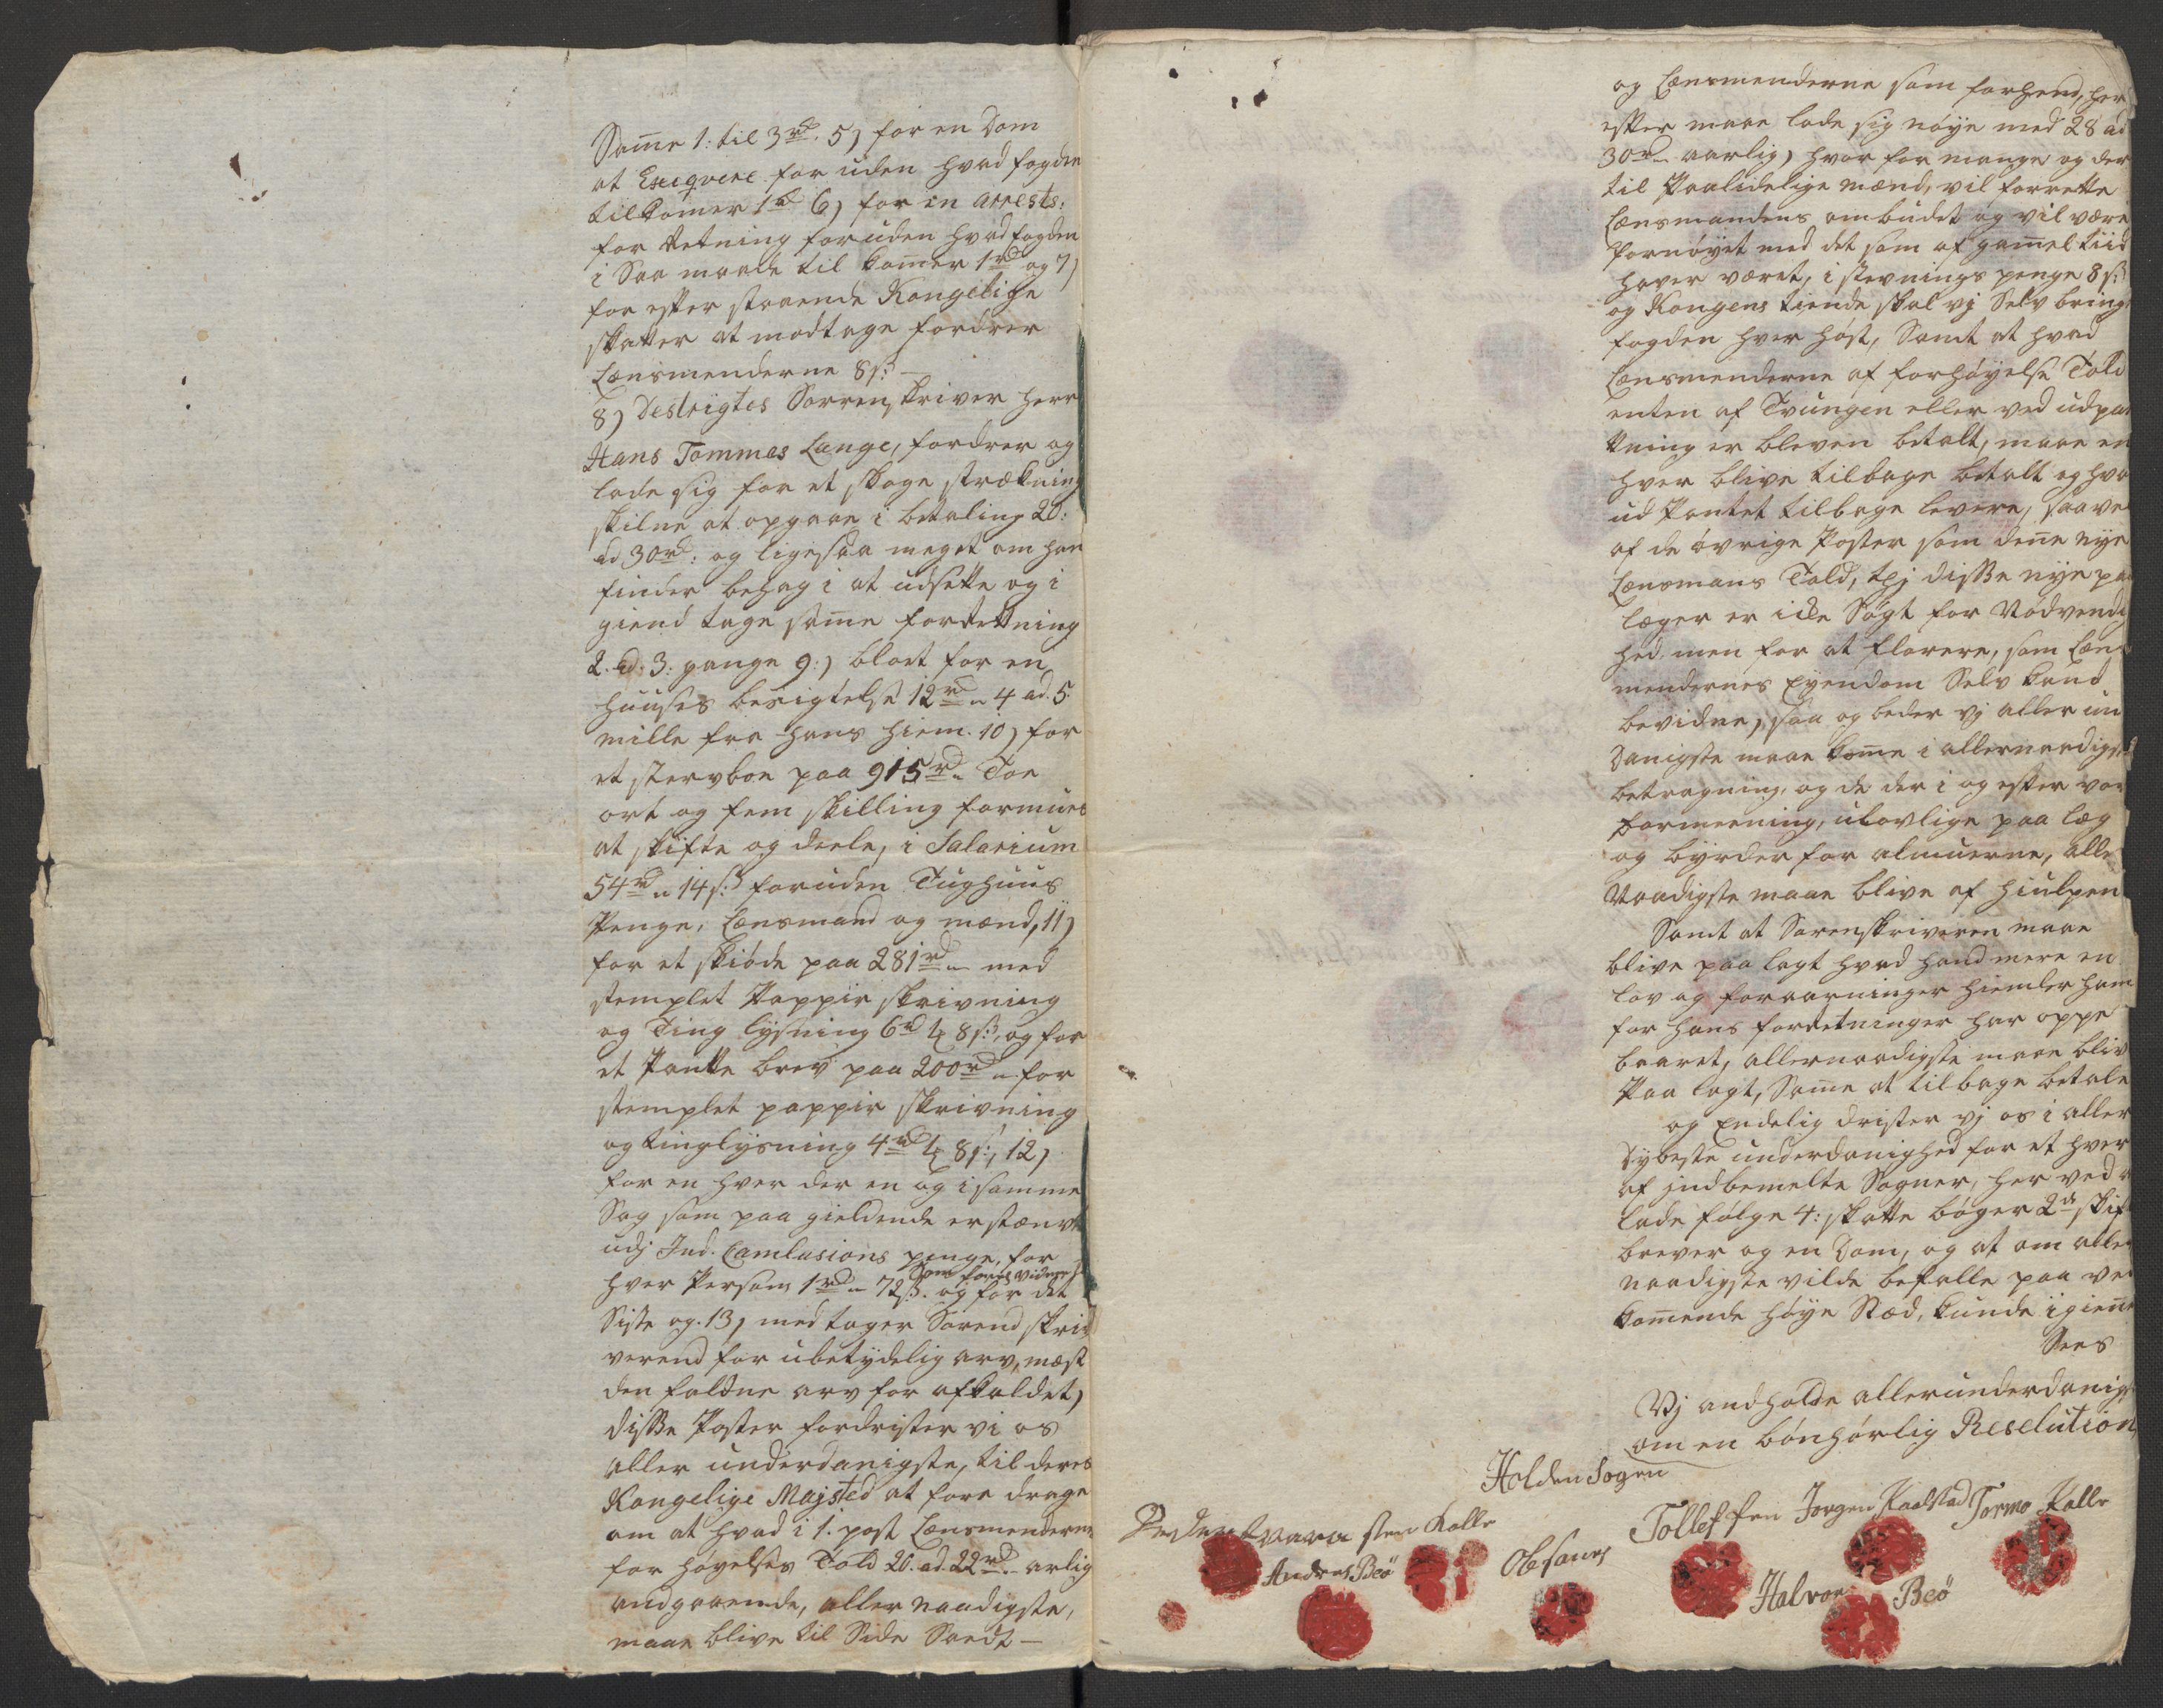 Same 1: til 3rd. 5) for en Dom
at Exeqvere for uden hvad fogden
tilkomer 1rd 6) for en Arrests:
for Retning foruden hvad fogden
i Saa maade til komer 1rd og 7)
for efter staaende Kongelige
skatter at modtage fordrer
Lensmenderne 8 s:
8) Destrigtes Sorrenskriver herr
Hans Tommas Lange, fordrer og
lade sig for et skoge strækning
skilne at opgaae i betaling 20:
ad 30rd: og ligesaa meget om han
finder behag i at udsette og i
giend tage same forrettning
2. ad. 3. gange 9:) blot for en
huuses besigtelse 12rd 4 ad. 5.
mille fra hans hiem. 10) for
et stervboe paa 915rd Toe
ort og fem skilling formues
at skifte og deele, i Salarium
54rd 14 s: foruden Tughuus
Penge, Lensmand og mænd, 11)
for et skiøde paa 281rd med
stemplet Pappir skrivning
og Ting lysning 6rd 8 s:, og for
et Pante brev paa 200rd for
stemplet pappir skrivning
og tinglysning 4rd 8 s:, 12)
for en hver der en og i samme
Sag som paa gieldende er stævnt
udj Ind. Camlusions penge, for
hver Person 1rd 72 s:. og for det
som føres vidner
Siste og. 13) med tager Sorend skri
verend for ubetydelig arv, mæst
den faldne arv for afkaldet,
disse Poster fordrister vi os
aller underdanigste, til deres
Kongelige Majsted at fore drage
om at hvad i 1. post Lensmenderne
for høyelses Told 20. ad. 22rd. arlig
andgaaende, aller naadigste,
maae blive til Side Sædt
og Lensmenderne som forhend, her
efter maae lade sig nøye med 28 ad
30rd aarlig, hvor for mange og der
til Paalidelige mænd, vil forrette
Lensmandens ombudet og vil være
fornøyet med det som af gamel tiid
haver været, i stevnings penge 8 s:
og Kongens tiende skal vj Selv bringe
fogden hver høst, Samt at hvad
Lensmenderne af forhøyelse Told
enten af Tvungen eller ved udpan
tning er bleven betalt, maae en
hver blive tilbage betalt og hva
ud Pantet tilbage levere, saavel
af de øvrige Poster som dene nye
Lensmans Told, thj disse nye paa
læger er icke Søgt for Nødvendig
hed, men for at florere, som Lens
mendernes Eyendom Selv kand
bevidne, saa og beder vj aller un
danigste maae kome i allernaadigste
betragning, og de der i og efter vor
formeening, ulovlige paa læg
og byrder for almuerne, aller
Naadigste maae blive af hiulpen
Samt at Sorenskriveren maae
blive paa lagt hvad hand mere en
lov og foraarninger hiemler ham
for hans forretninger har oppe
baaret, allernaadigste maae blive
Paa lagt, Same at tilbage betale
og Endelig drister vj os i aller
dybeste underdanighed for et hver
af indbemelte Sogner, her ved at
lade følge 4: skatte bøger 2de skift
brever og en Dom, og at om aller
naadigste vilde befalle paa ved
komende høye Stæd, kunde igien
Sees
Vj andholde allerunderdanigst
om en bønhørlig Reselution
Holden Sogen
sten Kalle
Andres Beö
Ole saues
Tollef fen
Jørgen Kaasstad
Tormo Kalle
Halvor Beö